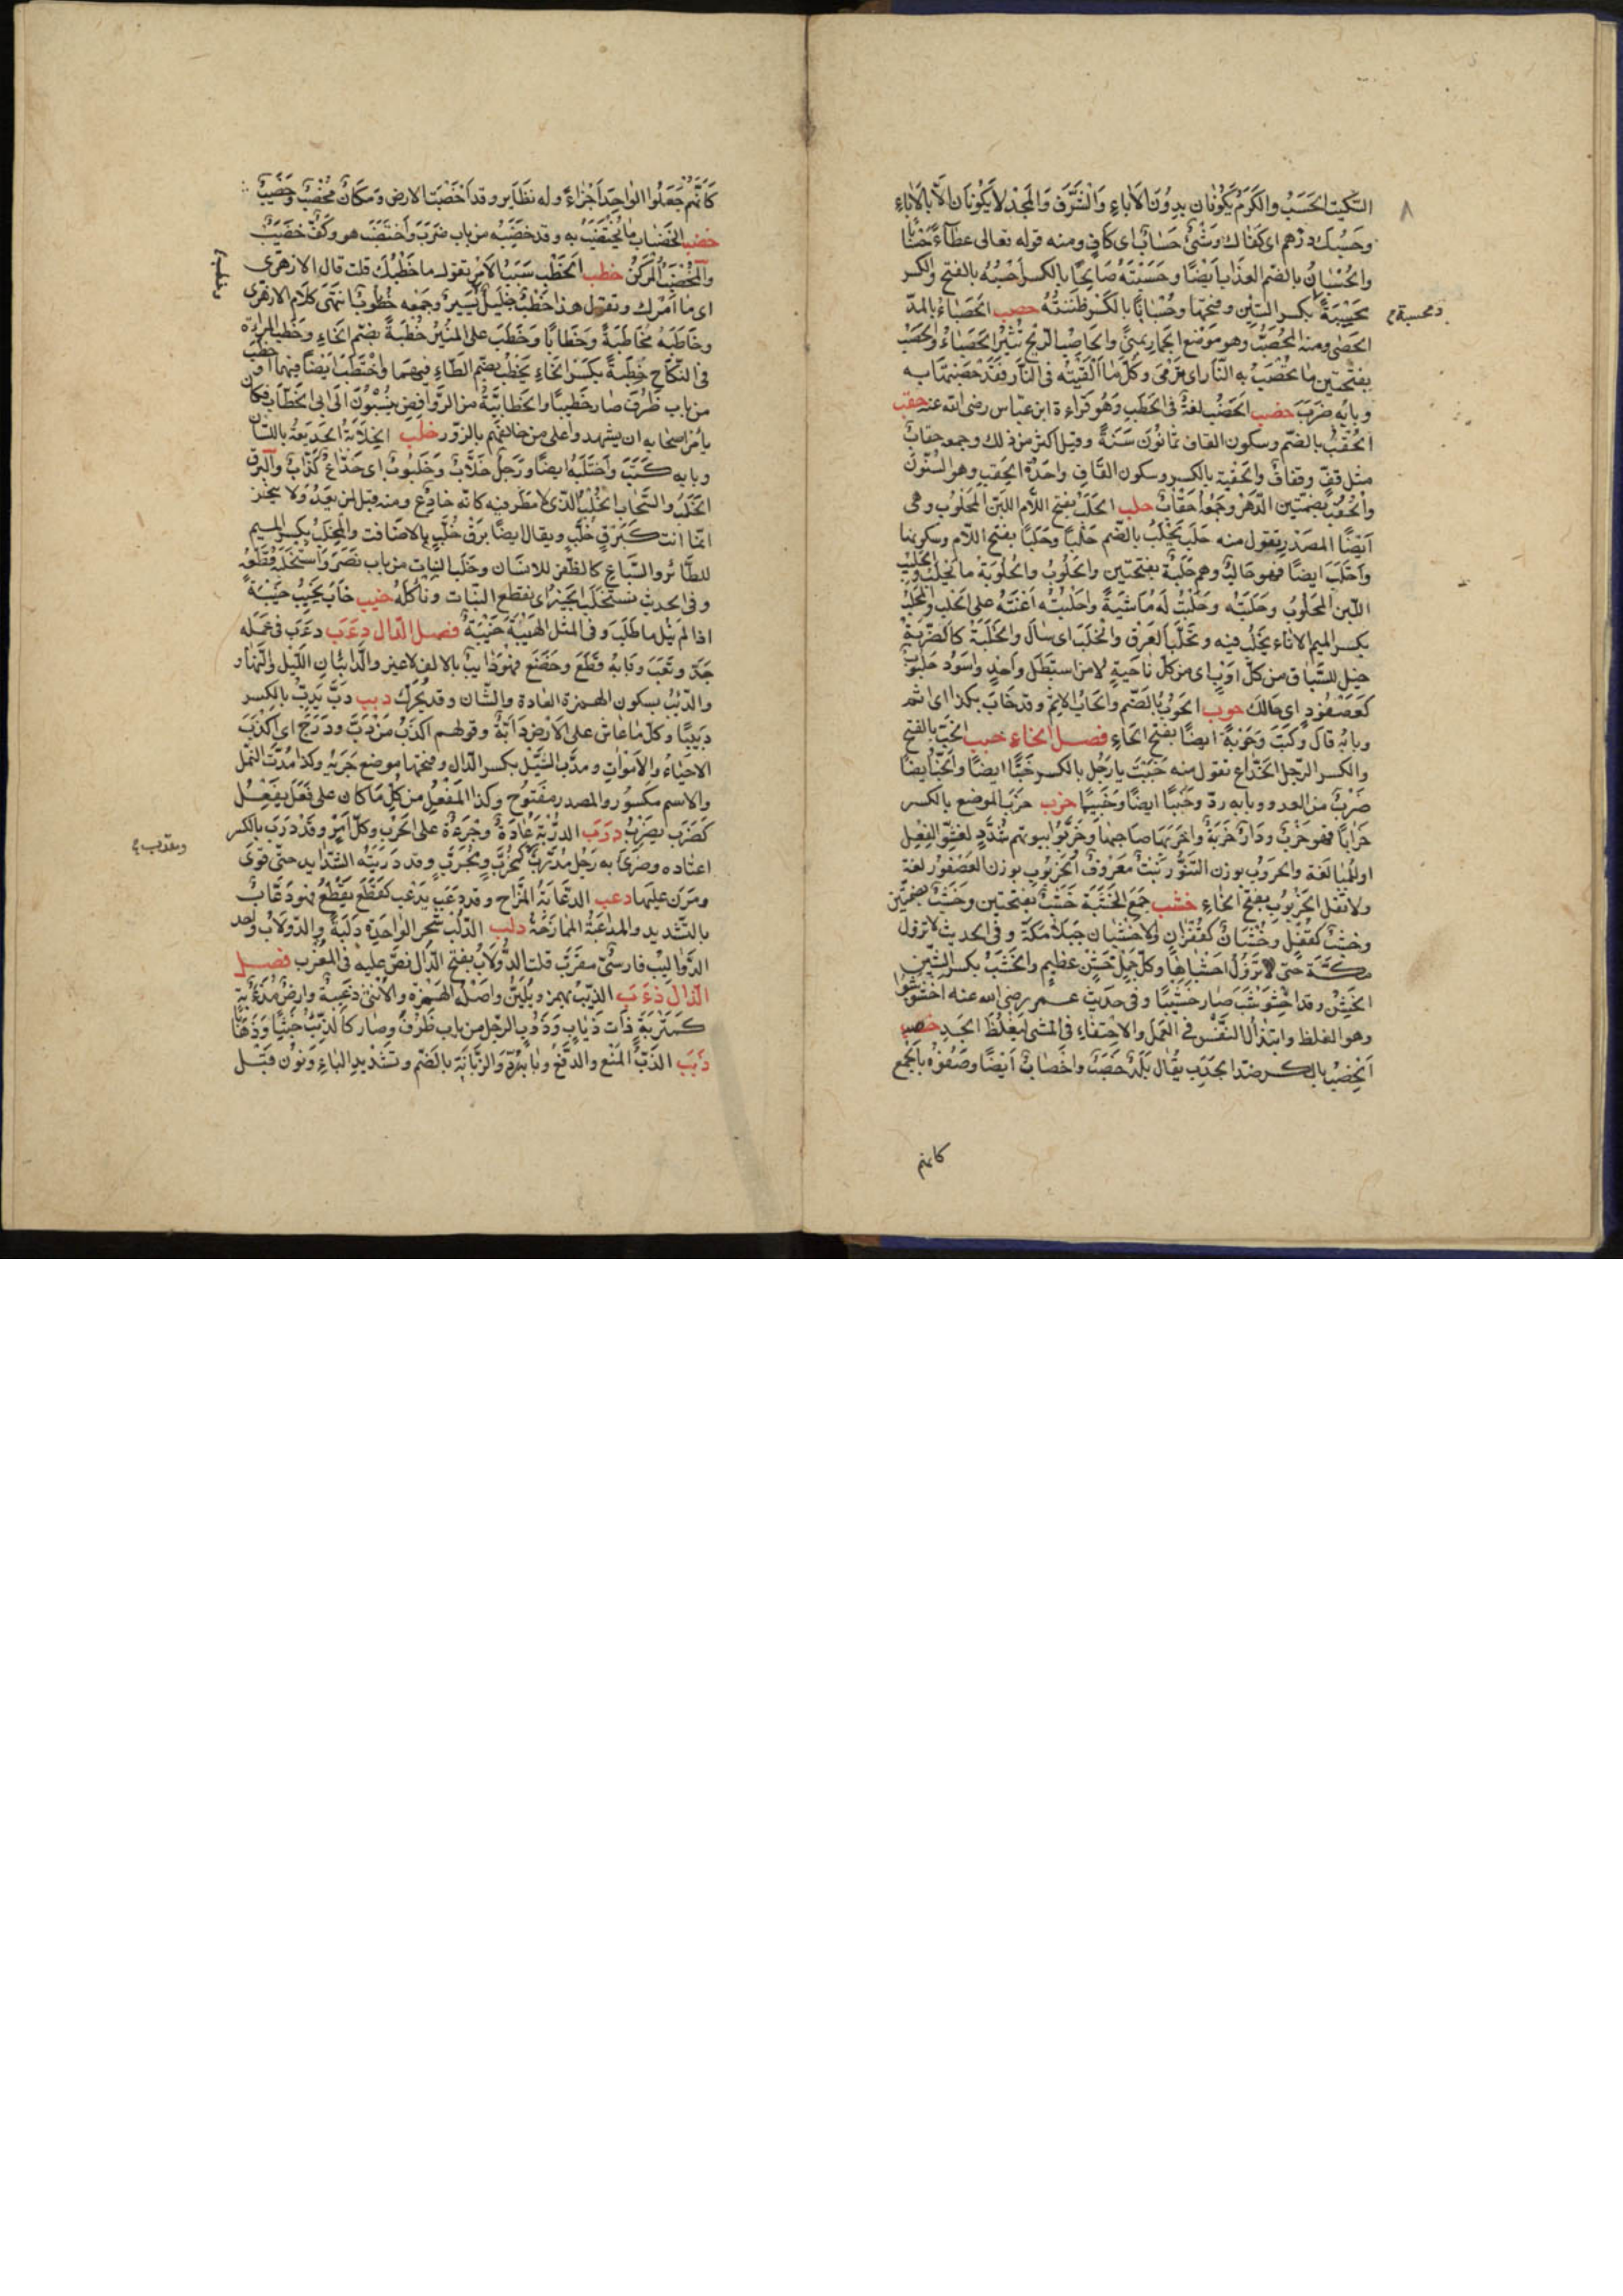 السكيت الحَسَبُ والكَرَمُ يَكُونَانِ بِدُونِ الآباءِ وَالشَّرَفُ وَالمَجْدُ لا يَكُونَانِ الَّا بِالآباءِ
وحَسْبُكَ دِرْهم اى كَفَاكَ وَشَىْءٌ حِسَابٌ اى كافٍ ومنه قوله تعالى عَطَاءً حِسَابًا
والحُسْبَانُ بالضّم العذَابُ ايضًا وحَسِبْتُهُ صَالِحًا بالكسر اَحْسِبُهُ بالفتح والكسر
مَحْسِبَةً بكسر السّين وفتحها وحِسْبَانًا بالكسر ظَنَنْتُهُ حصب الحَصْبَاءُ بالمدّ
الحَصَى ومنه المُحَصَّبُ وهو مَوْضِع الجِمارِ بِمِنًى والحَاصِبُ الرّيحُ تُثِيرُ الحَصْبَاءَ والحَصَبُ
بفتحتين ما تُحْصَبُ به النّار اى تُرْمَى وكلّ ما اَلْقَيْتَه فى النّار فَقَدْ حَصَبْتَهَا به
وبابُه ضَرَبَ حضب الحَضَبُ لغةٌ فى الحَطَبِ وَهُو قِرَاءة ابن عبّاس رضى الله عنه حقب
الحُقْبُ بالضّم وسكون القاف ثمانُونَ سَنَةً وقيل اكثر من ذلك وجمعه حِقَابٌ
مثل قُفٍّ وقِفَافٍ والحِقْبة بالكسر وسكون القَافِ واحِدَةُ الحِقَبِ وهى السُّنُونَ
والحُقُبُ بضمّتين الدَّهْرُ وجَمْعُه اَحْقَابٌ حلب الحَلَبُ بفتح اللّام اللَّبَن المَحْلُوبُ وهى
اَيْضًا المصدر تقول منه حَلَبَ يَحْلُبُ بالضّم حَلْبًا وحَلَبًا بفتح اللّام وسكونها
وَاحْتَلَبَ ايضًا فهو حَالِبٌ وهم حَلَبَةٌ بفتحتين والحَلُوبُ والحَلُوبَةُ ما يُحْلَبُ والحَلِيبُ
اللّبن المَحْلُوبُ وحَلَبْتُه وحَلَبْتُ لَهُ مَاشِيَةً واَحْلَبْتُه اَعَنْتُهُ على الحَلْبِ والمِحْلَبُ
بكسر الميم الاناء يُحْلَبُ فيه وتَحَلَّبَ العَرَقُ وانْحَلَبَ اى سَالَ والحَلْبَةُ كالضَّرْبَةِ
خيل للسّباق من كلّ اَوْبٍ اى من كلّ ناحيةٍ لا من اِسْطَبْلٍ واحدٍ واَسْوَدُ حُلْبُوبٌ
كعُصْفُورٍ اى حَالِكٌ حوب الحُوبُ بالضّم والحَابُ الاِثْمُ وقد حَابَ بكذا اى اثم
وبابُهُ قَالَ وكَتَبَ وحَوْبَةً ايضًا بفتح الحَاءِ فصل الخاء خبب الخَبُّ بالفتح
والكسر الرّجل الخَدَّاع تقول منه خَبِبْتَ يا رَجُل بالكسر خِبًّا ايضًا والخَبَبُ ايضًا
ضَرْبٌ من العدو وبابه رَدّ وخَبَبًا ايضًا وخَبِيبًا خرب خَرِبَ الموضع بالكسر
خَرَابًا فهو خَرِبٌ ودَارٌ خَرِبَةٌ واَخْرَبَهَا صاحِبُهَا وخَرَّبُوا بيوتهم شُدِّدَ لفُشُوِّ الفِعْل
او للمُبَالغة والخَرُّوب بوزن التَّنُّور نَبْتٌ مَعْرُوفٌ والخُرْنُوبُ بوزن العُصْفُورِ لغة
ولا تَقُل الخَرْنُوب بفتح الخَاءِ خشب جَمعُ الخَشَبَة خَشَبٌ بفتحتين وخُشُبٌ بضمّتين
وخُشْبٌ كقُفْلٍ وخُشْبَانٌ كغُفْرَانٍ والاَخْشَبَانِ جَبَلَا مَكّةَ وفى الحديث لا تزول
مكّة حتّى يَزُولَ اَخْشَبَاهَا وكلّ جَبَلٍ خَشِنٍ عظيمٍ والخَشِبُ بكسر الشّين
الخَشِنُ وقد اخْشَوْشَبَ صار خَشِبًا وفى حديث عمر رضى الله عنه اخْشَوْشِبُوا
وهو الغِلَظُ وابتذالُ النَّفْس فى العَمَلِ والاِحْتِفَاءُ فى المشى ليَغْلُظَ الجَسَد خصب
الخِصْبُ بالكسر ضدّ الجَدْبِ يُقَال بَلَدٌ خِصْبٌ واَخْصَابٌ اَيْضًا وصَفُوهُ بالجَمْعِ
كانّهم
٨
ومحسبة م
كَاَنَّهُمْ جَعَلُوا الواحِدَ اَجْزَاءً وله نظَايِر وقد اَخْصَبَتِ الارض ومَكَانٌ مُخْصِبٌ وخَصِيبٌ
خضب الخِضَاب ما يُخْتَضَبُ به وقد خَضَبَه من باب ضَرَبَ واخْتَضَبَ هو وكَفٌّ خَضِيبٌ
والمِخْضَبُ المِرْكَنُ خطب الخَطْبُ سَبَبُ الاَمْرِ تقول ما خَطْبُكَ قلت قال الازهرى
اى ما اَمْرُكَ وتقول هذا خَطْبٌ جَلِيلٌ ويَسِيرٌ وجَمْعُه خُطُوبٌ انتَهَى كلَام الازهرى
وخَاطَبَهُ مُخَاطَبَةً وخِطَابًا وخَطَبَ على المِنْبَرِ خُطْبَةً بضمّ الخاءِ وخَطَبَ المرْاَة
فى النّكاح خِطْبَةً بكسر الخَاءِ يَخْطُبُ بضمّ الطّاءِ فيهما واخْتَطَبَ ايضًا فيهما وخَطُبَ
من باب ظَرُفَ صار خَطِيبًا والخَطّابِيَّةُ من الرَّوَافِضِ يُنْسَبُونَ الَى ابى الخَطّابِ وكان
يأمر اصحابه ان يشهدوا على من خالفهم بالزّور خلب الخِلَابَةُ الخَدِيعَةُ باللّسان
وبابه كَتَبَ واخْتَلَبَهُ ايضًا ورَجُلٌ خَلَّابٌ وخَلَبُوبٌ اى خَدَّاعٌ كَذّابٌ والبَرْقُ
الخُلَّبُ والسَّحَابُ الخُلَّبُ الّذى لا مَطَرَ فيه كانّه خادِعٌ ومنه قيل لمن يَعِدُ ولا يُنْجِز
انّما انت كَبَرْقٍ خُلَّبٍ ويقال ايضًا بَرْقُ خُلَّبٍ بالاضافت والمِخْلَبُ بكسر الميم
للطّائر والسّباع كالظّفر للانسان وخَلَبَ النبات من باب نَصَرَ واسْتَخْلَبَهُ قَطَعَهُ
وفى الحديث نَسْتَخْلِبُ الخَبِيرَ اى نقطع النّبات وناكُلُهُ خيب خَابَ يَخِيبُ خَيْبَةً
اذا لم يَنَلْ ما طَلَبَ وفى المثل الهَيْبَةُ خَيْبَةٌ فصل الدّال دءب دَءَبَ فى عَمَلِه
جَدَّ وتَعِبَ وبَابُهُ قَطَعَ وخَضَعَ فهو دَائِبٌ بالالف لا غير والدَّائِبَانِ اللّيل والنّهار
والدَّأْبُ بسكون الهمزة العَادة والشّان وقد يُحَرَّك دبب دَبَّ يَدِبُّ بالكسر
دَبِيبًا وكلّ ما مَاشٍ على الاَرْضِ دَابّةٌ وقولهم اَكْذَبُ مَنْ دَبَّ ودَرَجَ اى اَكْذَبُ
الاحْيَاءِ والاَمْوَاتِ ومَدَبّ السَّيْلِ بكسر الدّال وفتحها موضع جَرْيِهِ وكذا مَدَبُّ النَّمل
والاسم مكسُور والمصدر مفتُوح وكذا المَفْعَل من كلّ ما كان على فَعَلَ يَفْعِلُ
كضَرَبَ يَضْرِبُ دَرَبَ الدُّرْبَةُ عَادَةٌ وجُرْءَةٌ على الحَرْبِ وكلّ اَمْرٍ وقَدْ دَرِبَ بالكسر
اعتاده وضَرِىَ به رَجُل مُدَرَّبٌ كمُجَرَّبٍ ومُجَرِّبٌ وقد دَرَّبَتْه الشّدايد حتّى قوِىَ
ومَرَنَ عليها دعب الدُّعَابَةُ المِزَاح وقد دَعَبَ يَدْعَب كقَطَعَ يَقْطَعُ فهو دَعَّابٌ
بالتّشديد والمُدَاعَبَةُ المُمَازَحَةُ دلب الدُّلْبُ شَجر الواحِدَةُ دُلْبَةٌ والدّولابُ واحد
الدَّوَالِيبُ فارسىّ معرّب قلت الدَّولابُ بفتح الدّال نصّ عليه فى المُغْرِب فصل
الذّال ذءب الذِّئبُ يُهْمز ويُلَيَّنُ واصْلُهُ الهَمْزة والاُنْثى ذئبة وارض مَذْءَبَة
كمَتْرَبَةٍ ذَات ذِئَابٍ وذَؤُبَ الرّجل من باب ظَرُفَ وصار كالذّئب خُبْثًا ودَهَاءً
ذَبَبَ الذَّبُّ المَنْعُ والدَّفْعُ وبابُهُ رَدّ والزَّبَّانَةُ بالضّم وتَشْدِيد البَاءِ ونون قبل